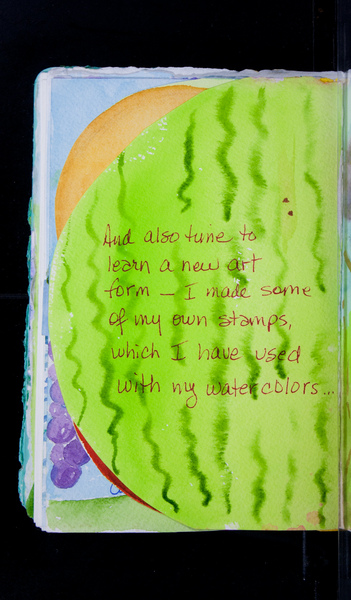 And also time to
learn a new art
form — I made some
of my own stamps,
which I have used
with my watercolors...